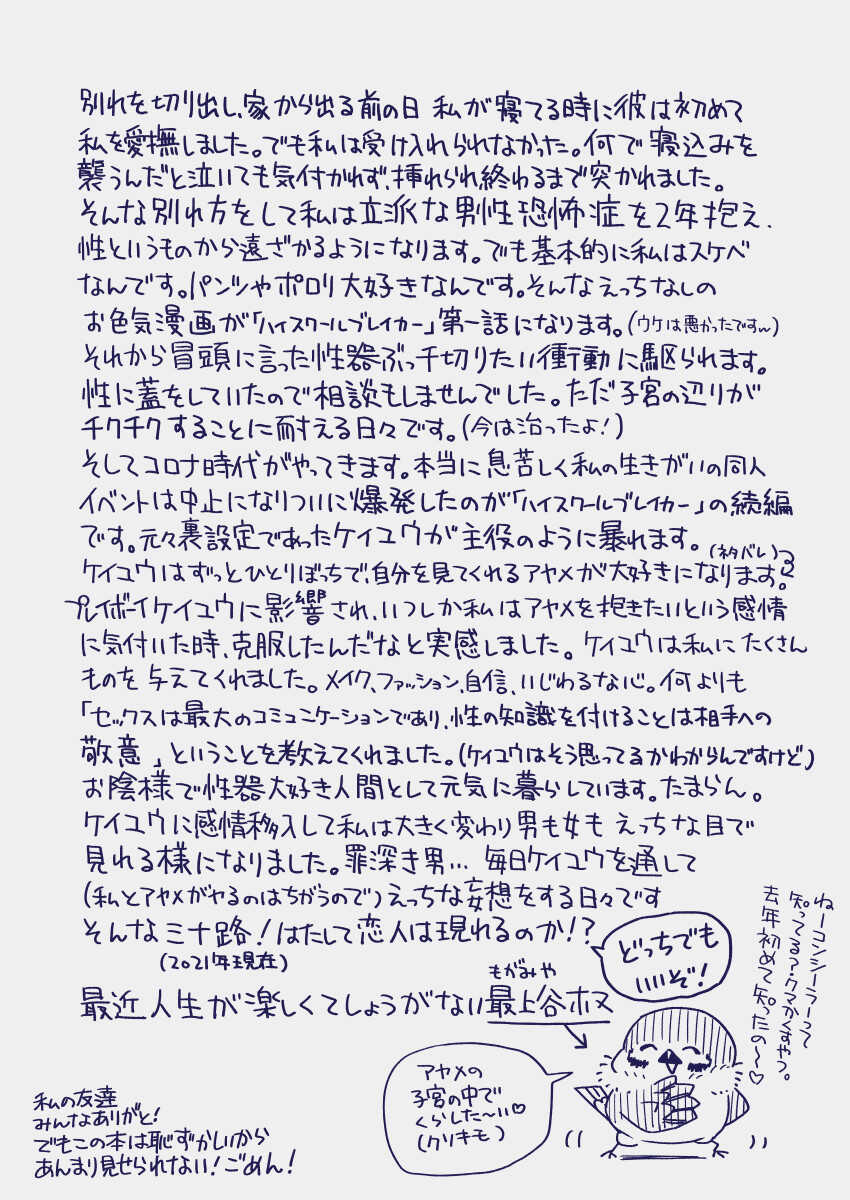 別れを切り出し、家から出る前の日 私が寝てる時に彼は初めて
私を愛撫しました。でも私は受け入れられなかった。何で寝込みを
襲うんだと泣いても気付かれず、挿れられ終わるまで突かれました。
そんな別れ方をして私は立派な男性恐怖症を2年抱え、
性というものから遠ざかるようになります。でも基本的に私はスケベ
なんです。パンツやポロリ大好きなんです。そんなえっちなしの
お色気漫画が「ハイスクールブレイカー」第一話になります。(ウケは悪かったですw)
それから冒頭に言った性器ぶっ千切りたい衝動に駆られます。
性に蓋をしていたので相談もしませんでした。ただ子宮の辺りが
チクチクすることに耐える日々です。(今は治ったよ!)
そしてコロナ時代がやってきます。本当に息苦しく私の生きがいの同人
イベントは中止になりついに爆発したのが「ハイスクールブレイカー」の続編
です。元々裏設定であったケイユウが主役のように暴れます。
(ネタバレい)
ケイユウはずっとひとりぼっちで、自分を見てくれるアヤメが大好きになります。
プレイボーイケイユウに影響され、いつしか私はアヤメを抱きたいという感情
に気付いた時、克服したんだなと実感しました。ケイユウは私にたくさん
ものを与えてくれました。メイク、ファッション、自信、いじわるな心。何よりも
「セックスは最大のコミュニケーションであり、性の知識を付けることは相手への
敬意」ということを教えてくれました。(ケイユウはそう思ってるかわからんですけど)
お陰様で性器大好き人間として元気に暮らしています。たまらん。
ケイユウに感情移入して私は大きく変わり男も女もえっちな目で
見れる様になりました。罪深き男… 毎日ケイユウを通して
(私とアヤメがヤるのはちがうので)えっちな妄想をする日々です
そんなミナ路!はたして恋人は現れるのか!?
(2021年現在)
どっちでも
いいぞ!
もがみや
最近人生が楽しくてしょうがない最上谷ホヌ
ねーコンシーラーって
知ってる?クマかくすやつ。
去年初めて知ったの〜♡
アヤメの
子宮の中で
くらした〜い♡
(クソキモ)
私の友達
みんなありがと!
でもこの本は恥ずかしいから
あんまり見せられない!ごめん!